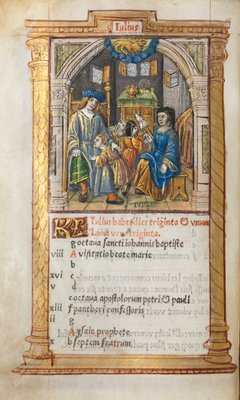 Iulius
KL Iulius habet dies triginta & unum
Luna vero triginta.
g octava sancti iohannis baptiste
viii A visitatio beate marie
b
xvi c
v d
e octava apostolorum petri & pauli
xiii f pantheri confessoris
ii g
A ysaie prophete
x b septem fratrum